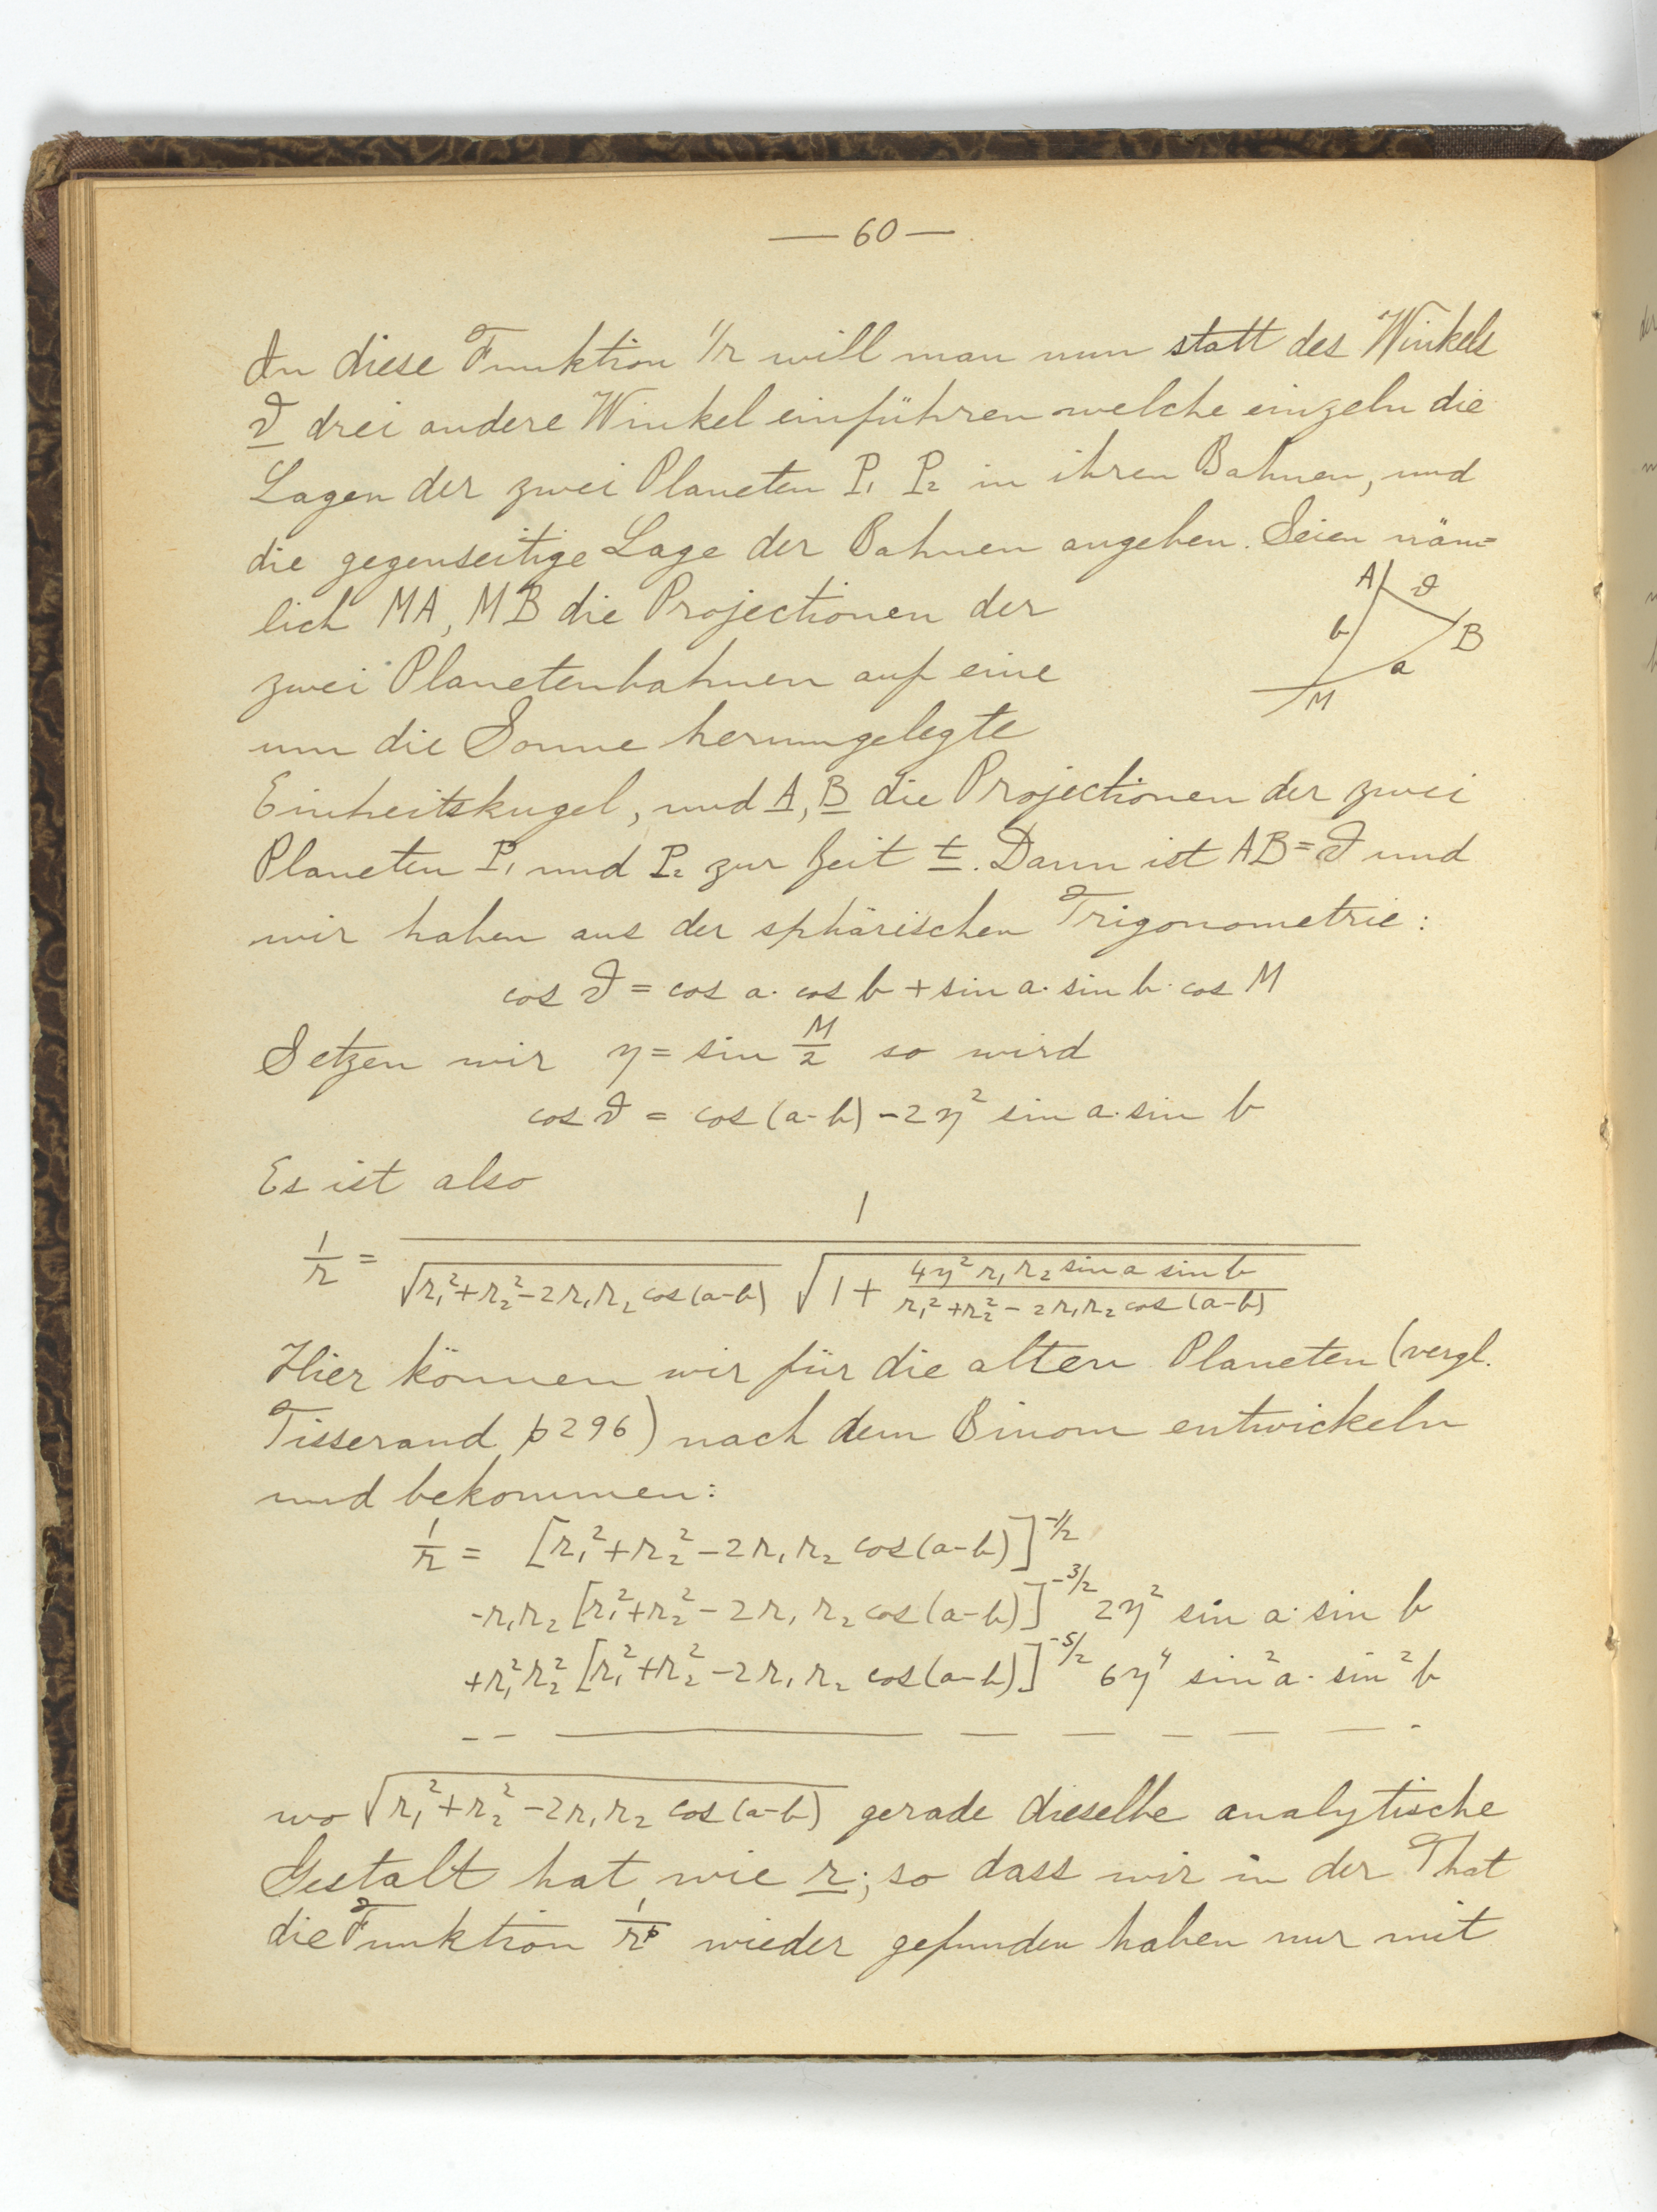 — 60 —
In diese Funktion 1/r will man nun statt des Winkels
ϑ drei andere Winkel einführen welche einzeln die
Lagen der zwei Planeten P₁ P₂ in ihren Bahnen, und
die gegenseitige Lage der Bahnen angeben. Seien näm=
lich MA, MB die Projectionen der
zwei Planetenbahnen auf eine
um die Sonne herumgelegte
A ϑ
b B
a
M
Einheitskugel, und A, B die Projectionen der zwei
Planeten P₁ und P₂ zur Zeit t. Dann ist AB = ϑ und
wir haben aus der sphärischen Trigonometrie:
cos ϑ = cos a · cos b + sin a · sin b · cos M
Setzen wir η = sin M/2 so wird
cos ϑ = cos (a-b) - 2η² sin a · sin b
Es ist also
1/r = 1 / √(r₁² + r₂² - 2r₁r₂ cos (a-b)) √(1 + (4η² r₁r₂ sin a sin b)/(r₁² + r₂² - 2r₁r₂ cos (a-b)))
Hier können wir für die alten Planeten (vergl.
Tisserand p 296) nach dem Binom entwickeln
und bekommen:
1/r = [r₁² + r₂² - 2r₁r₂ cos (a-b)]^-1/2
- r₁r₂ [r₁² + r₂² - 2r₁r₂ cos (a-b)]^-3/2 2η² sin a · sin b
+ r₁²r₂² [r₁² + r₂² - 2r₁r₂ cos (a-b)]^-5/2 6η⁴ sin² a · sin² b
— — — — — — — — —
wo √(r₁² + r₂² - 2r₁r₂ cos (a-b)) gerade dieselbe analytische
Gestalt hat, wie r; so dass wir in der That
die Funktion 1/rᵖ wieder gefunden haben nur mit